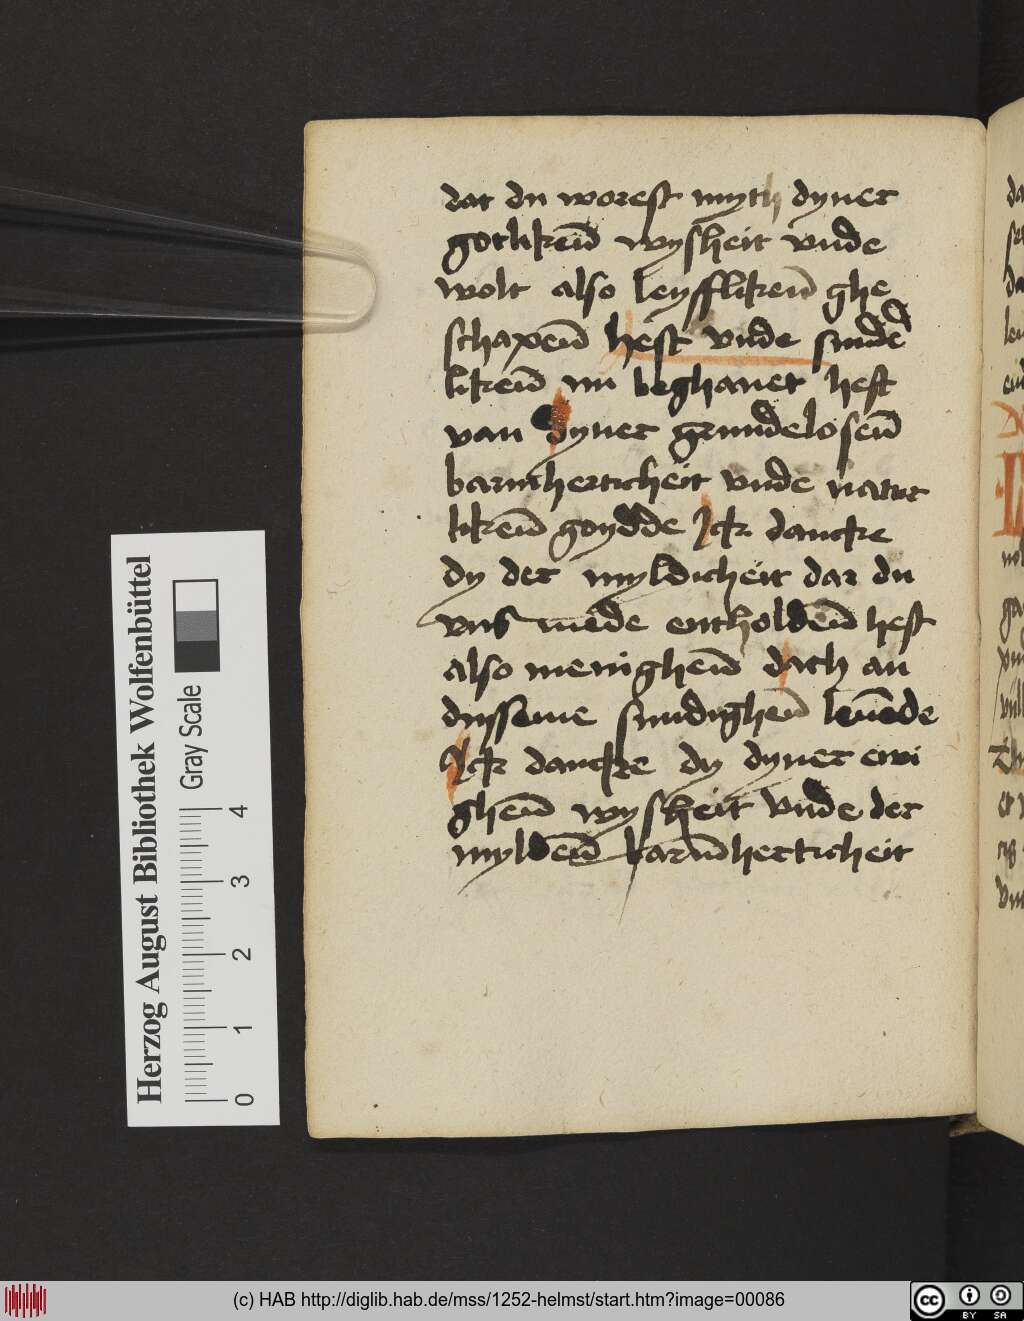 dat du worest myth dyner
gotlikeṅ wysheit vnde
wolt also leyffliken̄ ghe
schapen̄ hest vnde sunde
liken̄ nu beghauet hest
van dyner grundelosen̄
barmherticheit vnde natur
liken̄ goydde Jck dancke
dy der myldicheit dat du
vns mede entholden̄ hest
also menighen̄ dach an
dusseme sundighen̄ leuēde
Jck dancke dy dyner ewi
ghen̄ wysheit vnde der
mylden̄ barm̄herticheit
Herzog August Bibliothek Wolfenbüttel
Gray Scale
0 1 2 3 4
(c) HAB http://diglib.hab.de/mss/1252-helmst/start.htm?image=00086
cc BY SA